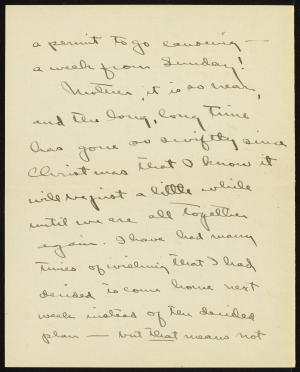 a permit to go canoeing —
a week from Sunday!
Mother, it is so near,
and the long, long time
has gone so swiftly since
Christmas that I know it
will be just a little while
until we are all together
again. I have had many
times of wishing that I had
decided to come home next
week instead of the decided
plan — but that means not